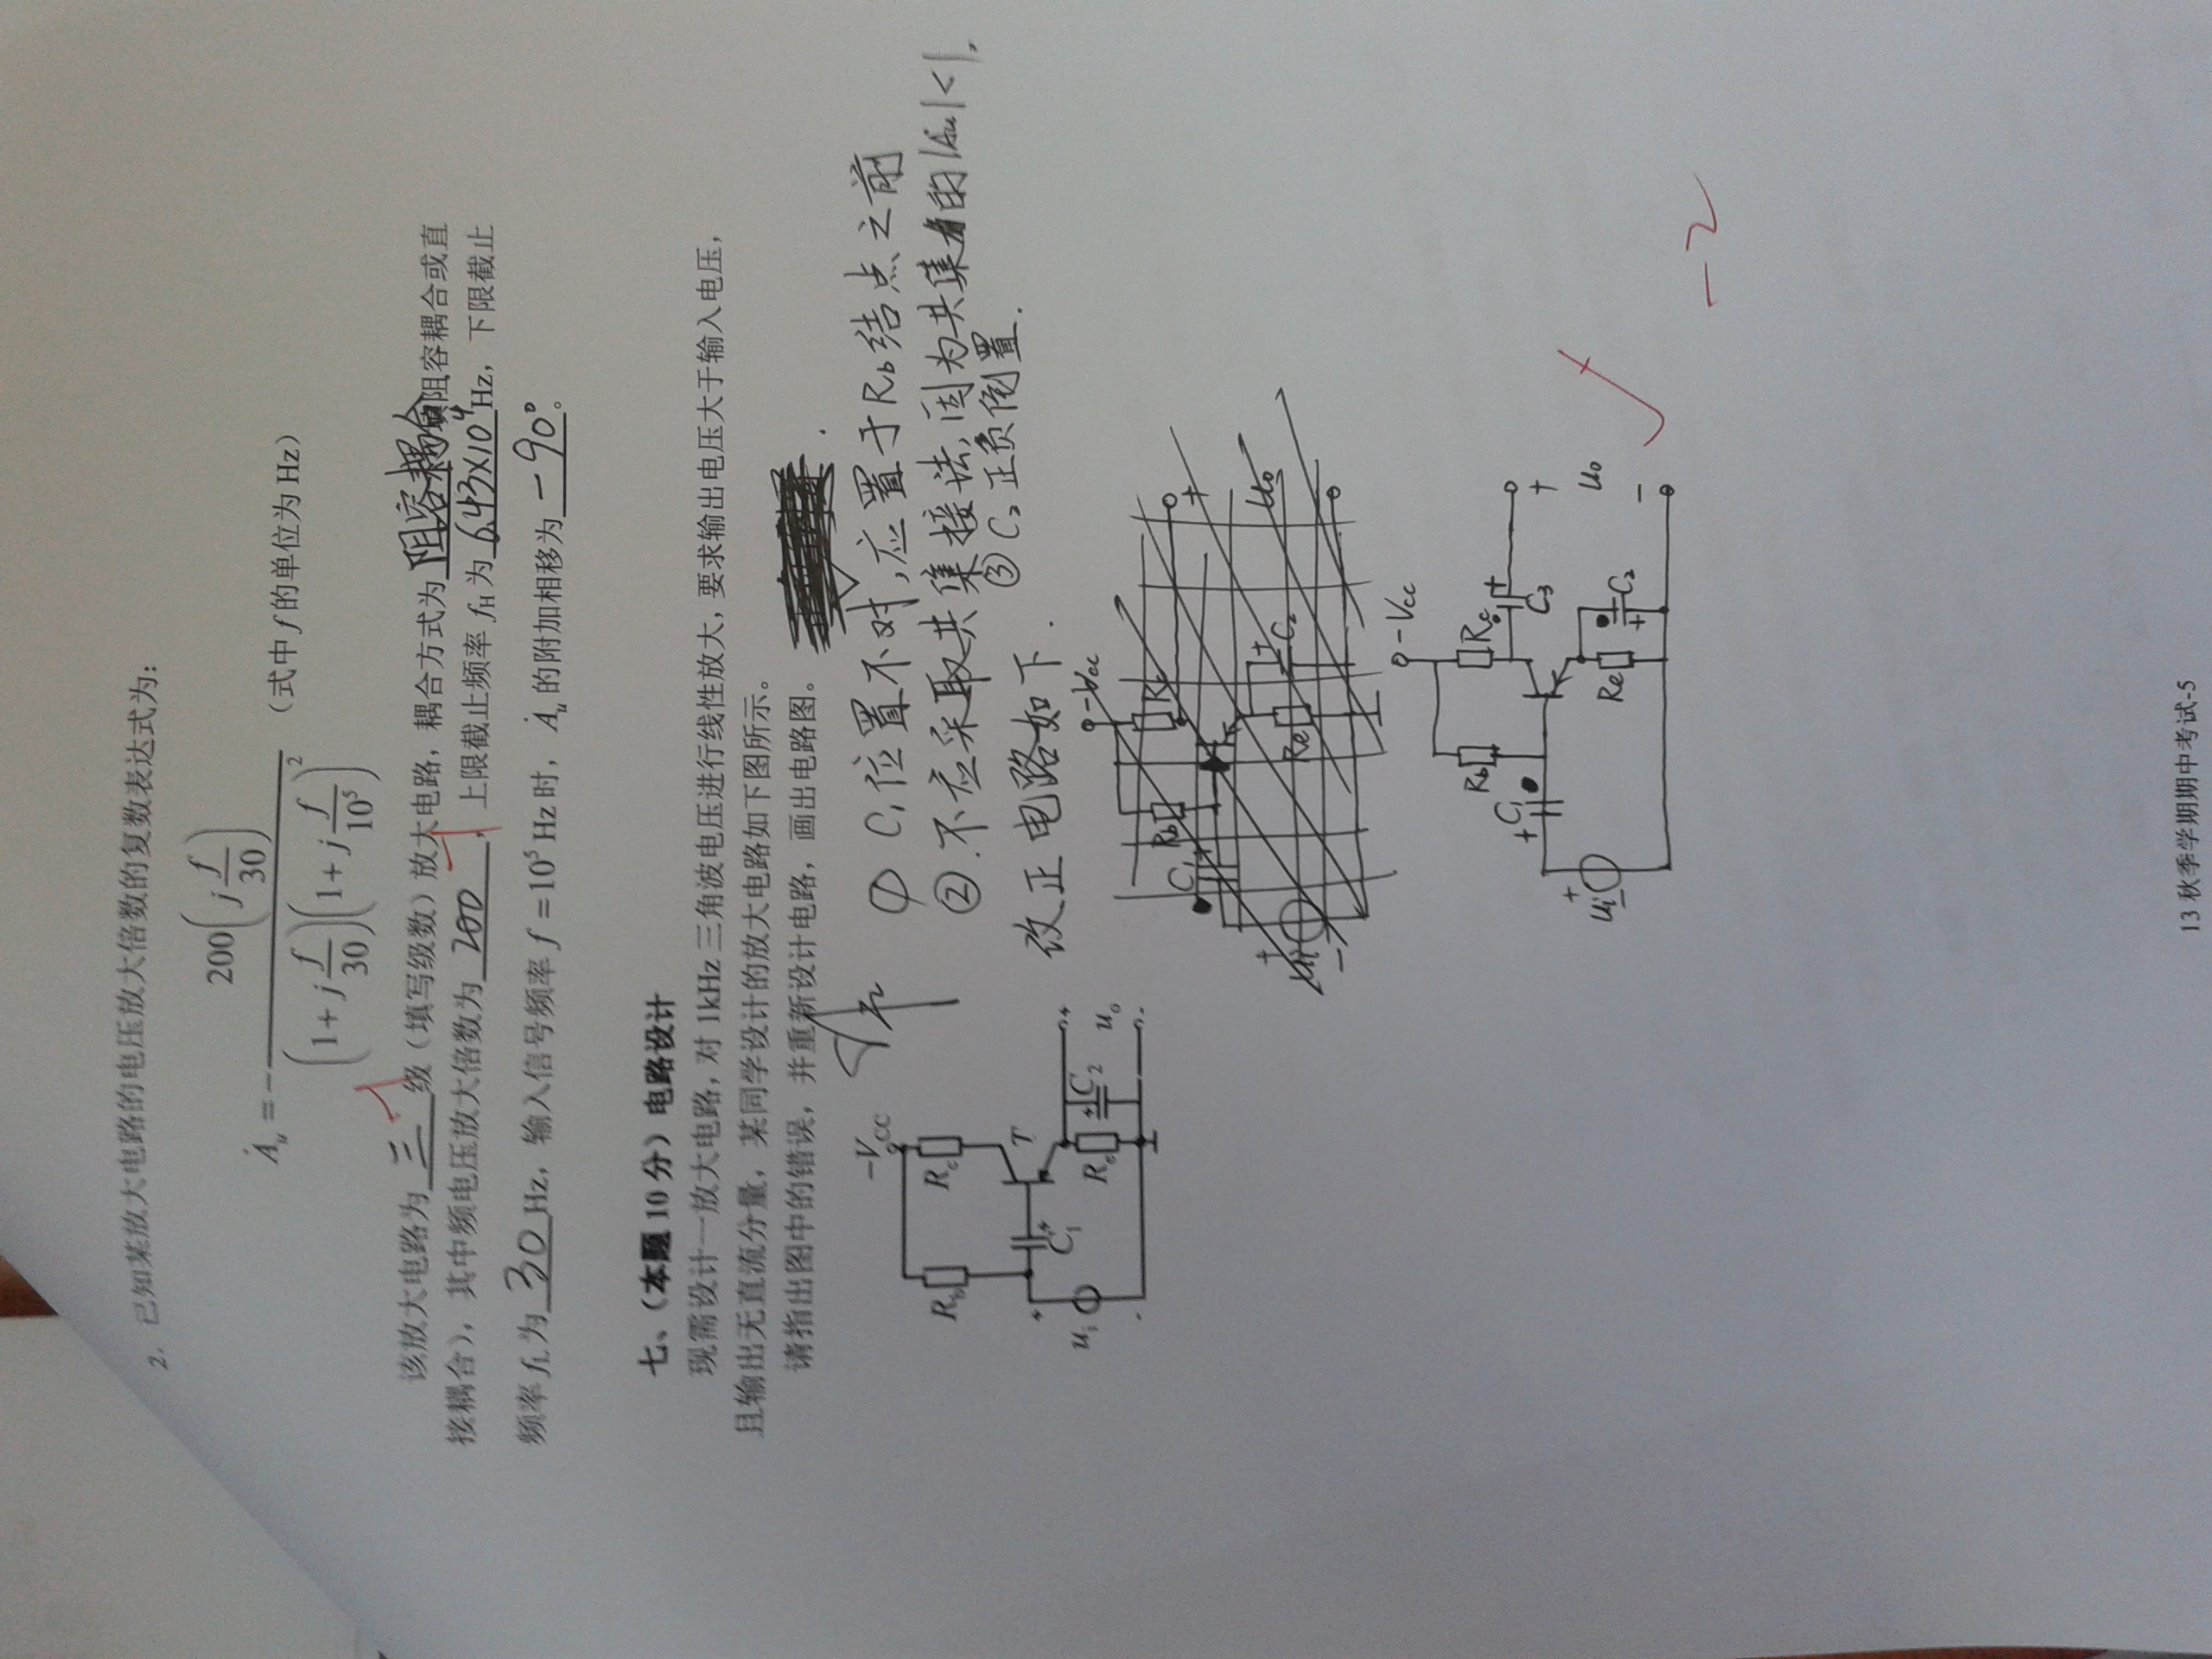 2. 已知某放大电路的电压放大倍数的复数表达式为：
200(j f/30)
Ȧu = − ———————— （式中 f 的单位为 Hz）
(1+j f/30)(1+j f/10⁵)²
该放大电路为 三 级（填写级数）放大电路，耦合方式为 阻容耦合 填阻容耦合或直
接耦合），其中频电压放大倍数为 200 ，上限截止频率 fH 为 6.43×10⁴ Hz，下限截止
频率 fL 为 30 Hz，输入信号频率 f =10⁵ Hz 时，Ȧu 的附加相移为 -90° 。
七、（本题 10 分）电路设计
现需设计一放大电路，对 1kHz 三角波电压进行线性放大，要求输出电压大于输入电压，
且输出无直流分量，某同学设计的放大电路如下图所示。
请指出图中的错误，并重新设计电路，画出电路图。
−VCC
Rb Rc
T
C1
ui Re C2 uo
① C₁位置不对，应置于Rb结点之前
②.不应采取共集接法，因为共集的|Au|<1.
③ C₂正负倒置.
改正电路如下.
-Vcc
Rb Rc
C₁
+
ui Re C₂ uo
-Vcc
Rb Rc
C₁ C₃
ui Re C₂ uo
-2
13 秋季学期期中考试-5